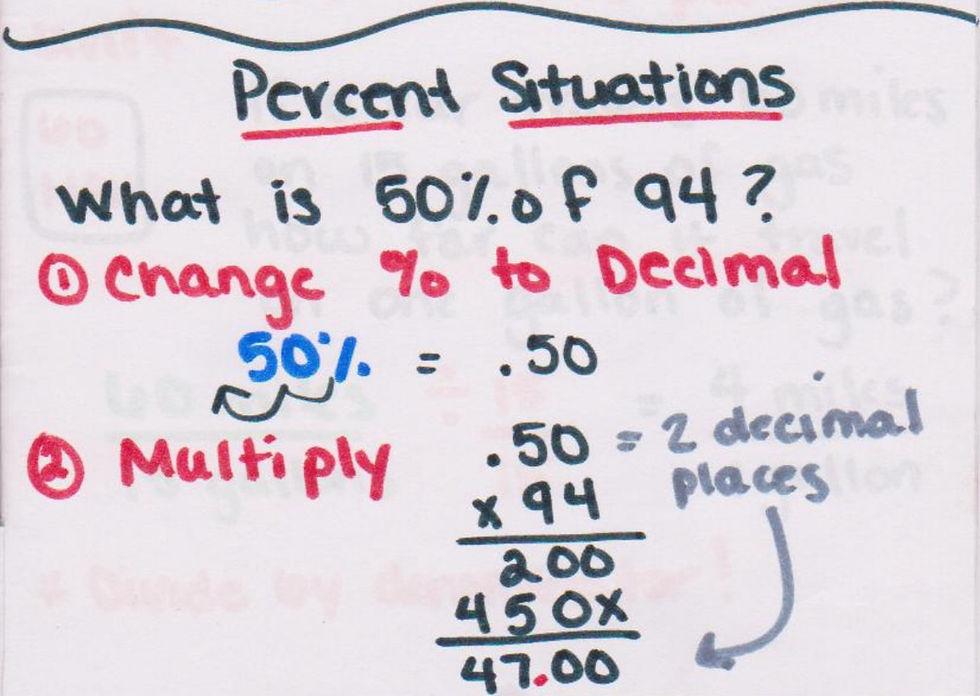 Percent Situations
What is 50% of 94?
① Change % to Decimal
50% = .50
② Multiply
.50 = 2 decimal places
x 94
200
450x
47.00